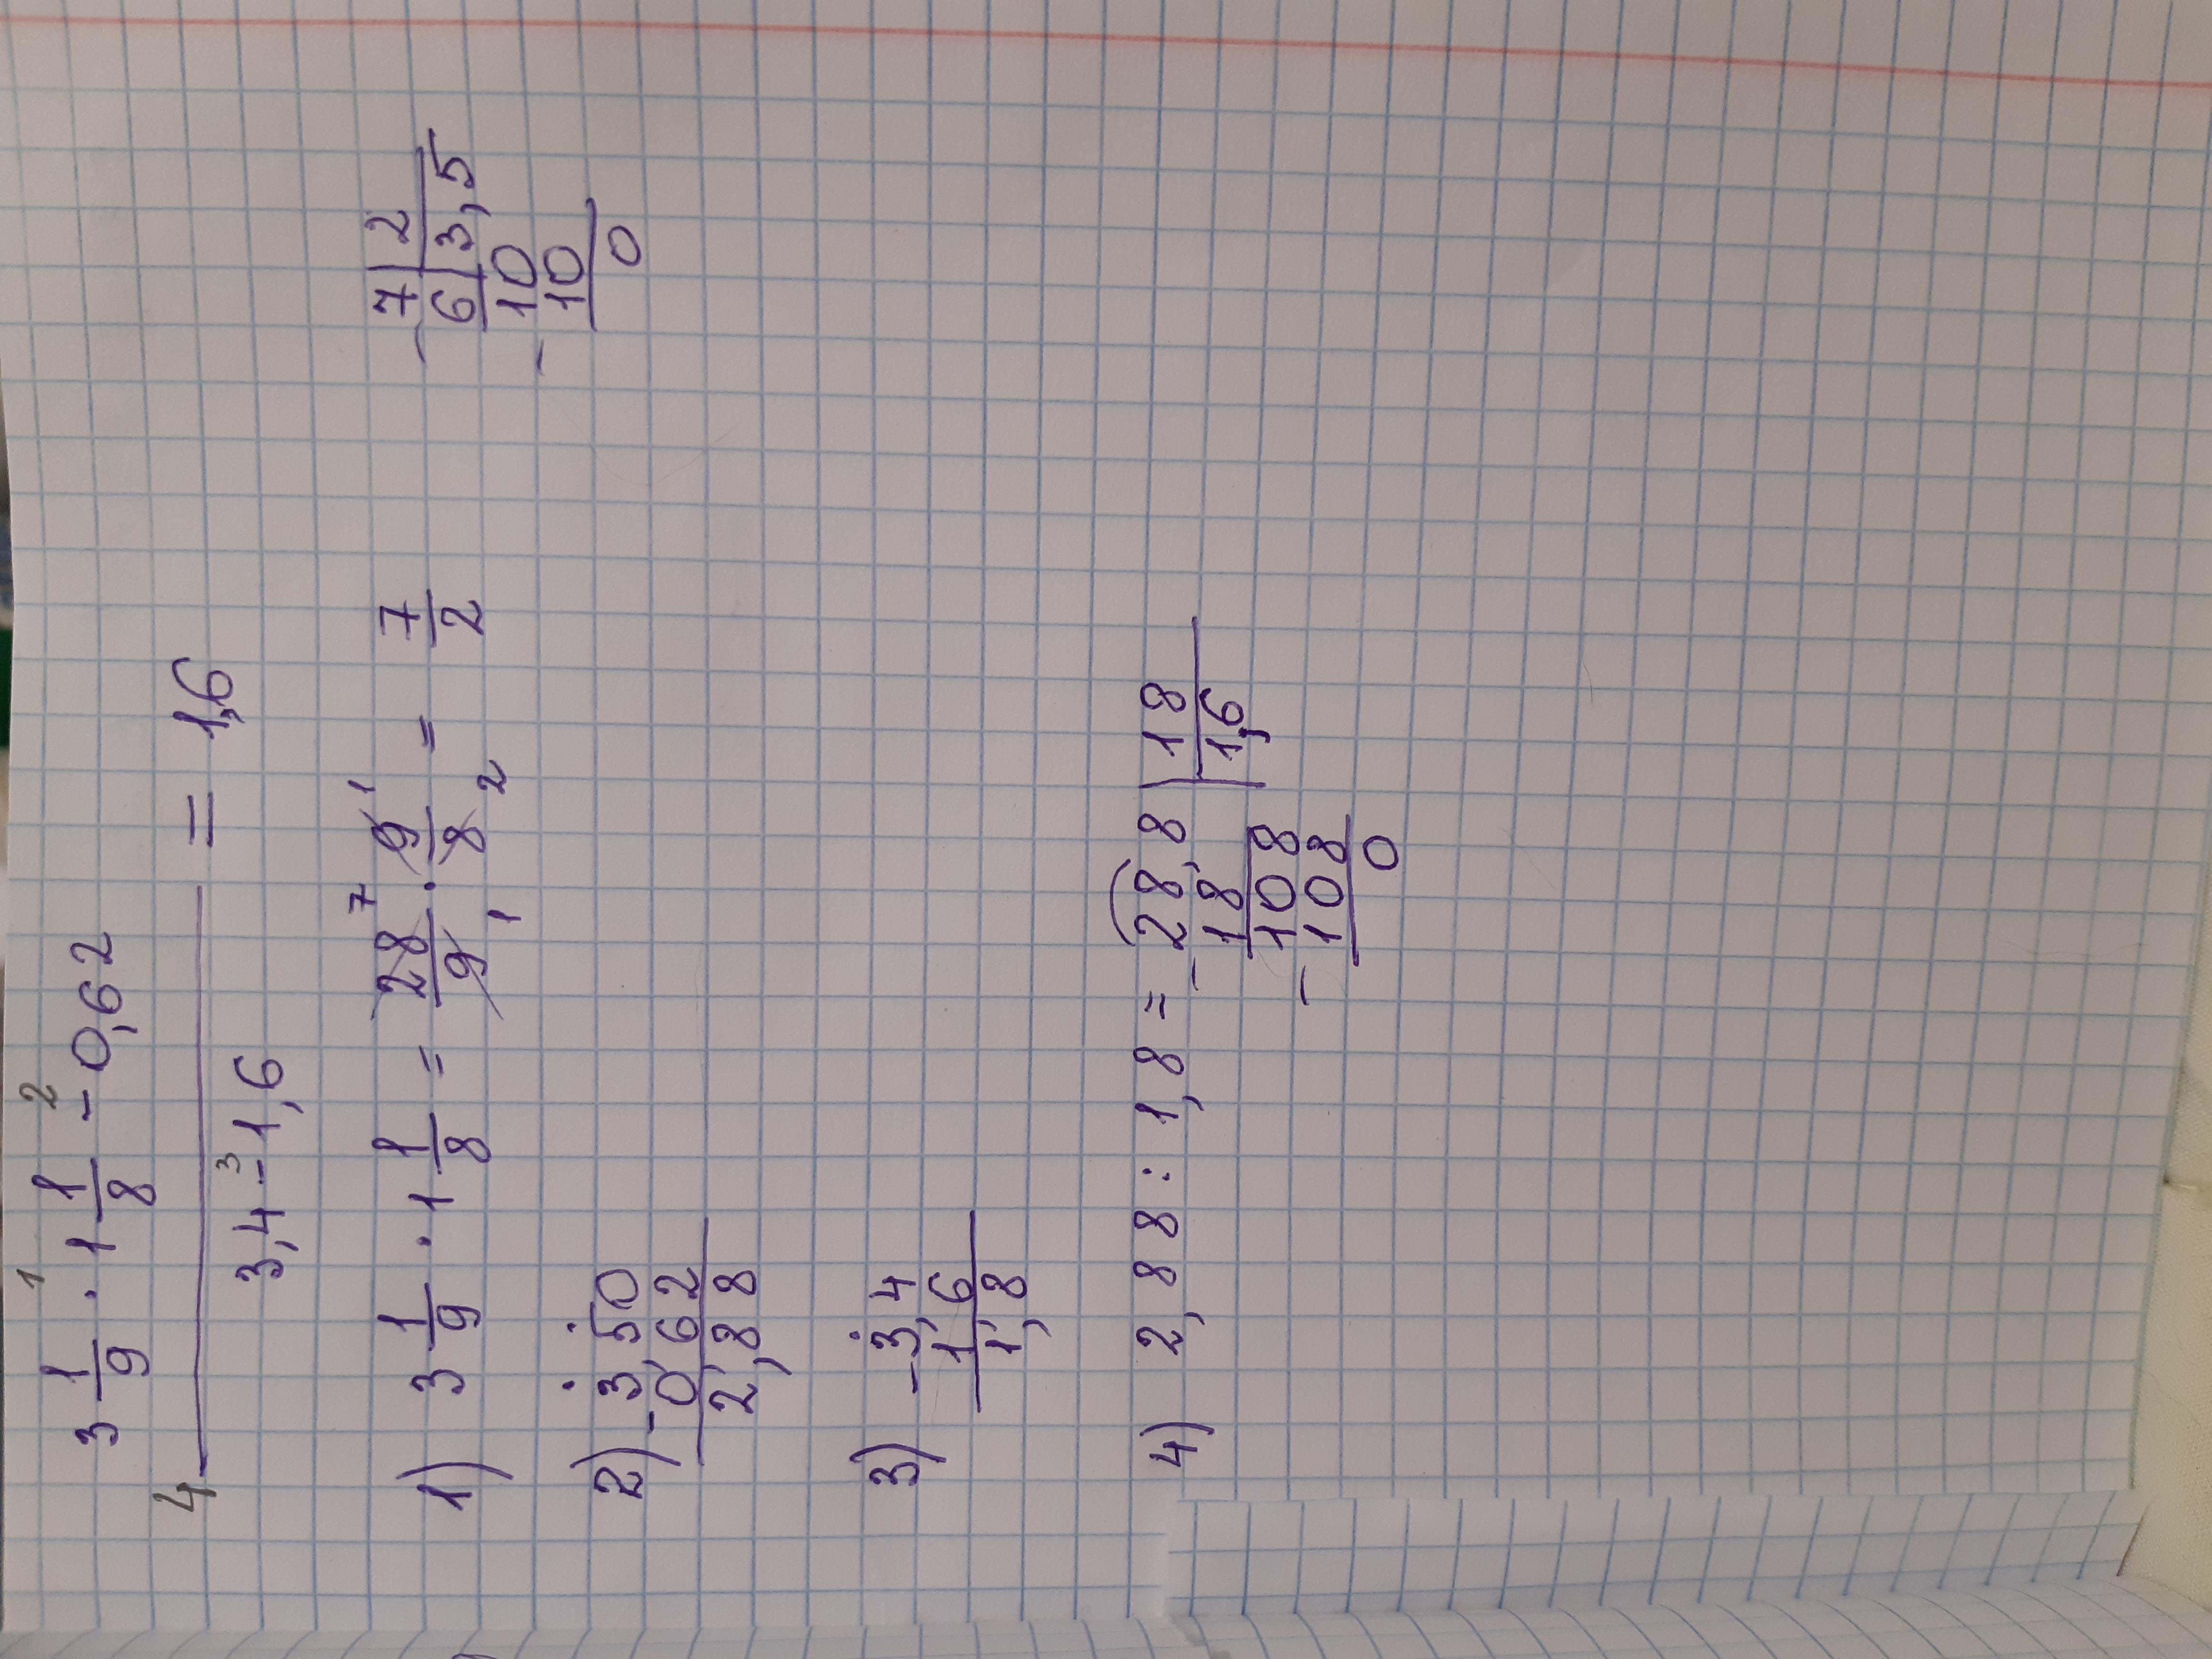 3 1/9 ·¹ 1 1/8 -² 0,62
4 ———————— = 1,6
3,4 -³ 1,6
1) 3 1/9 · 1 1/8 = 28⁷/9₁ · 9¹/8₂ = 7/2
-7 | 2
6 | 3,5
-10
10
0
2) 3,50
-0,62
2,88
3) -3,4
1,6
1,8
4) 2,88 : 1,8 = -28,8 | 18
18 | 1,6
-108
108
0